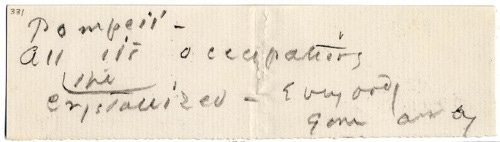 331
Pompeii –
All its occupations
the
crystallized – Everybody
gone away